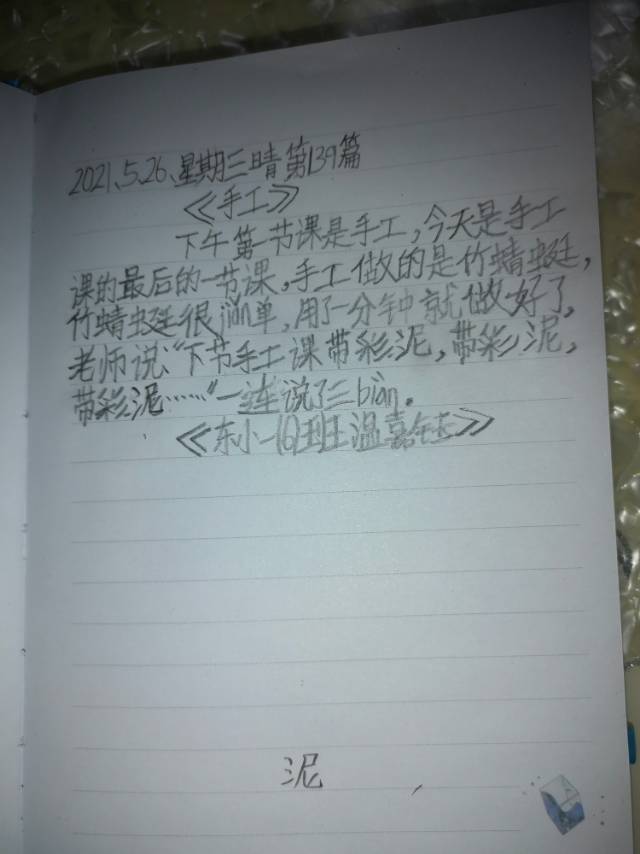 2021、5.26、星期三晴第139篇
《手工》
下午第一节课是手工,今天是手工
课的最后的一节课,手工做的是竹蜻蜓,
竹蜻蜓很jiǎn单,用了一分钟就做好了,
老师说:“下节手工课带彩泥,带彩泥,
带彩泥……”一连说了三biàn。
《东小一(6)班温嘉钰》
泥